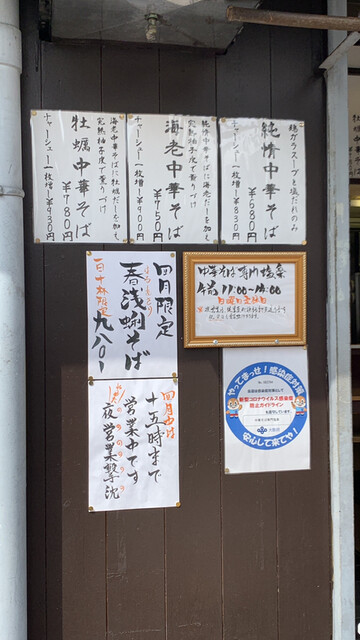 鶏ガラスープと塩だれのみ
純情中華そば
¥680円
チャーシュー一枚増し¥830円
純情中華そばに海老だしを加え
完熟柚子皮で香りづけ
海老中華そば
¥750円
チャーシュー一枚増し¥900円
海老中華そばに牡蠣だしを加え
完熟柚子皮で香りづけ
牡蠣中華そば
¥780円
チャーシュー一枚増し¥930円
四月限定
春浅蜊そば
一日十杯限定
九八〇円
中華そば専門
午前11:00〜15:00
日曜日定休日
四月中は
十五時まで
営業中です
夜営業撃沈
やってまっせ!感染症対策
新型コロナウイルス感染症
防止ガイドライン
を遵守しています。
大阪府
安心して来てや!